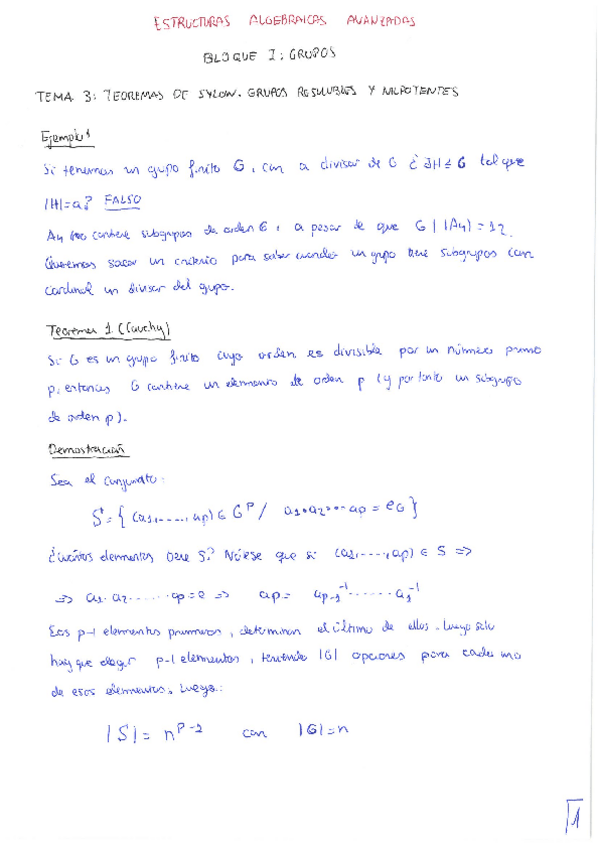 ESTRUCTURAS ALGEBRAICAS AVANZADAS
BLOQUE I: GRUPOS
TEMA 3: TEOREMAS DE SYLOW. GRUPOS RESOLUBLES Y NILPOTENTES
Ejemplo
Si tenemos un grupo finito G, con a divisor de G ¿ ∃H ≤ G tal que
|H|=a? FALSO
A4 no contiene subgrupos de orden 6, a pesar de que 6 | |A4| = 12.
Queremos sacar un criterio para saber cuando un grupo tiene subgrupos con
cardinal un divisor del grupo.
Teorema 1 (Cauchy)
Si G es un grupo finito cuyo orden es divisible por un número primo
p, entonces G contiene un elemento de orden p (y por tanto un subgrupo
de orden p).
Demostración
Sea el conjunto:
S = { (a1, ....., ap) ∈ G^p / a1·a2····ap = eG }
¿Cuántos elementos tiene S? Nótese que si (a1, ..., ap) ∈ S =>
=> a1·a2·......·ap = e => ap = ap-1^-1 ······ a1^-1
Los p-1 elementos primeros, determinan el último de ellos. Luego solo
hay que elegir p-1 elementos, teniendo |G| opciones para cada uno
de esos elementos, luego:
|S| = n^p-1 con |G| = n
1